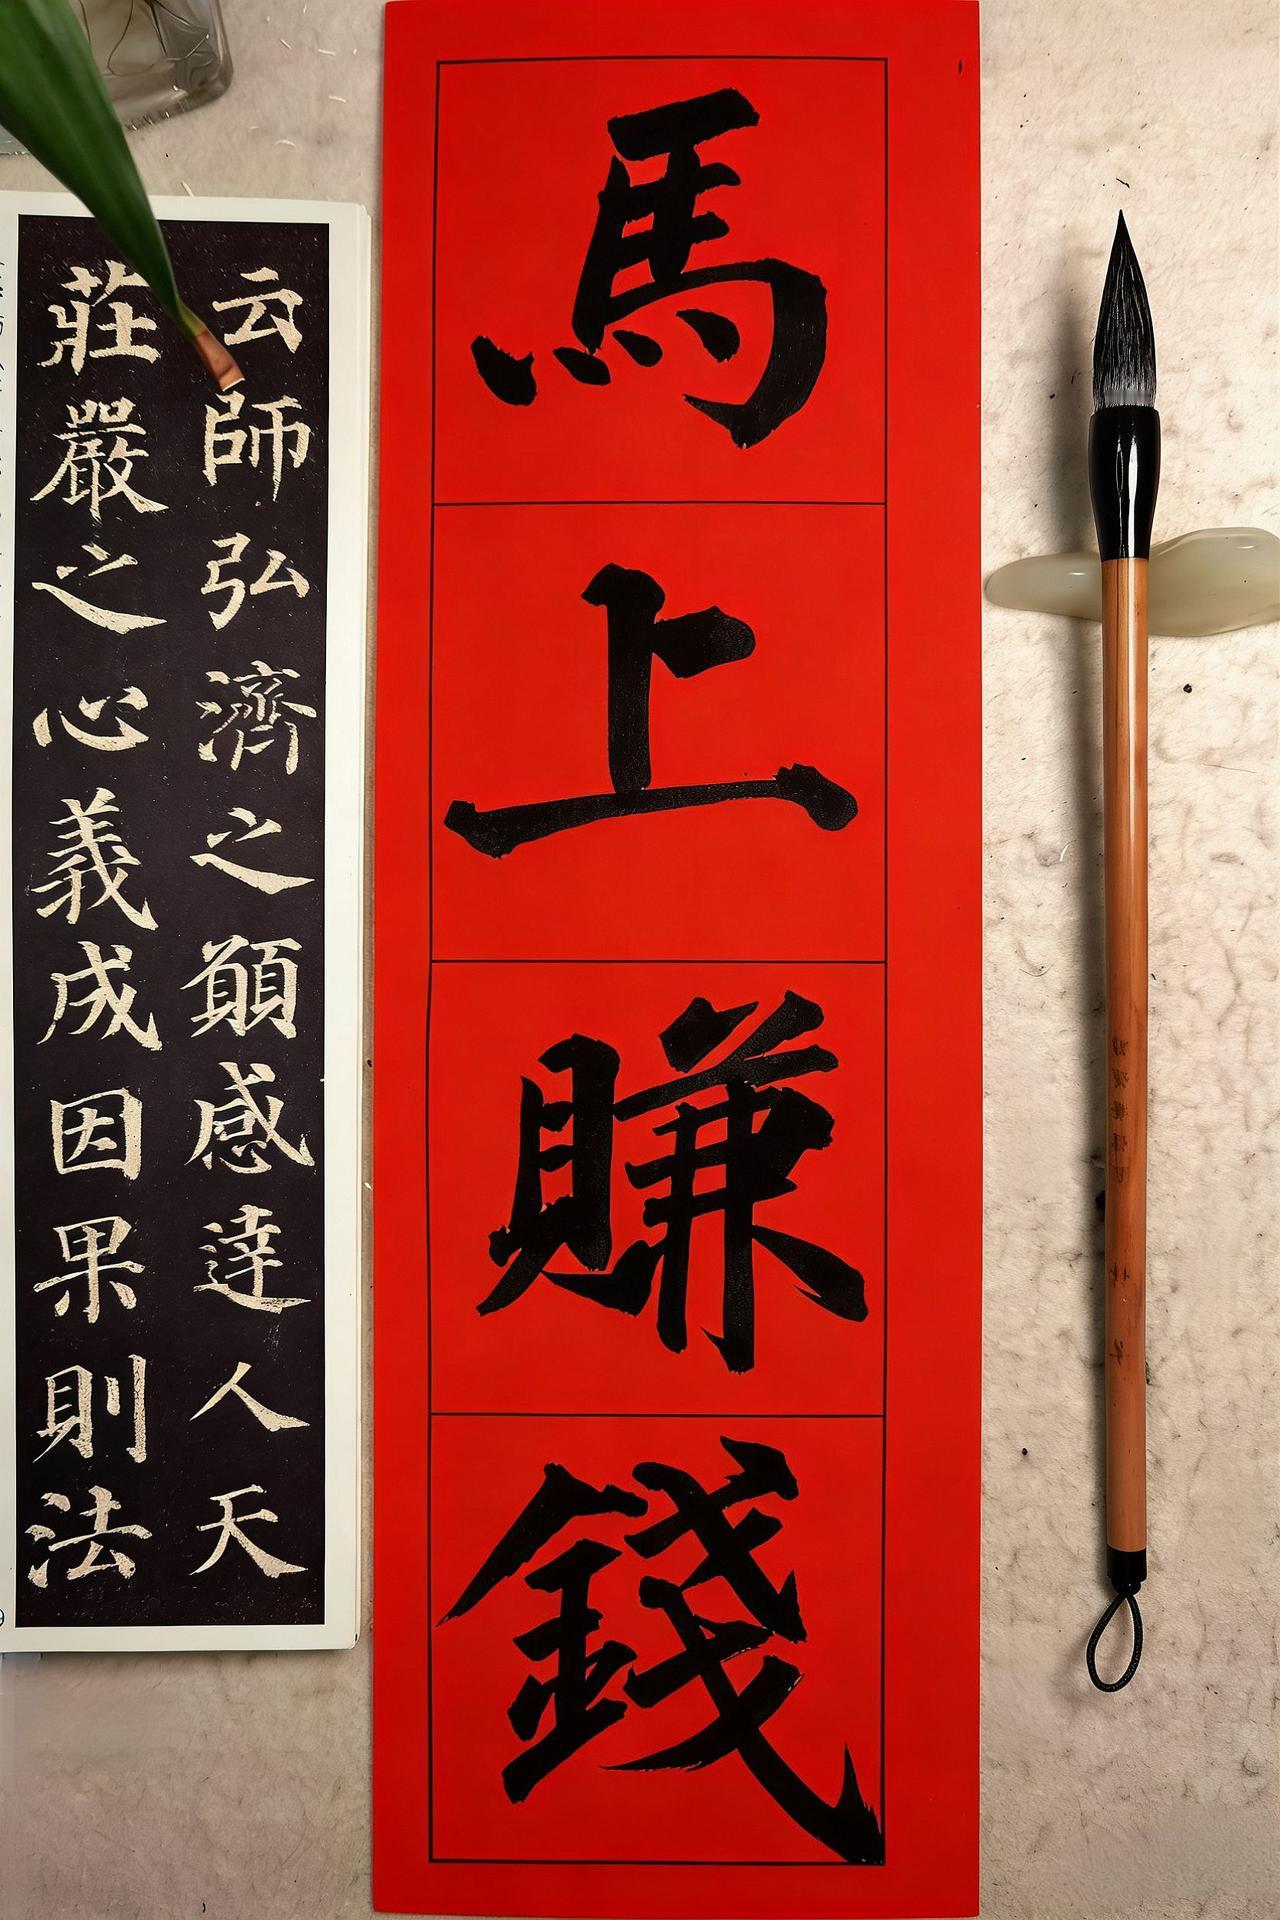 馬上賺錢
云師弘濟之願感達人天
莊嚴之心義成因果則法